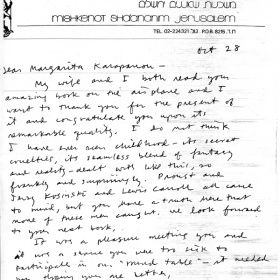 משכנות שאננים ירושלים
mishkenot sha'ananim jerusalem
TEL. 02-224321 .טל P.O.B. 8215 .ת.ד
Oct 28
Dear Margarita Karapanou –
My wife and I both read your
amazing book on the airplane and I
want to thank you for the present of
it and congratulate you upon its
remarkable quality. I do not think
I have ever seen childhood – its secret
cruelties, its seamless blend of fantasy
and reality – dealt with like this, so
frankly and surprisingly. Proust and
Jerzy Kosinski and Lewis Carroll all came
to mind, but you have a truth here that
none of these men caught. We look forward
to your next book.
It was a pleasure meeting you and
it was a shame you were too sick to
participate in our "round table" – it needed
you